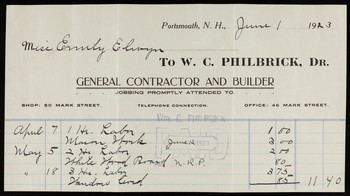 Portsmouth, N. H., June 1 1923
Miss Emily Elwyn
To W. C. PHILBRICK, DR.
GENERAL CONTRACTOR AND BUILDER
JOBBING PROMPTLY ATTENDED TO
SHOP: 50 MARK STREET. TELEPHONE CONNECTION. OFFICE: 46 MARK STREET.
Wm. C. PHILBRICK
April 7 1 Hr. Labor 1 00
Mason Work 3 00
May 5 2 Hr Labor 2 00
White Wood Board N.R.P. 80
" 18 3 Hr. Labor 3 75
Window Cord 85 11 40